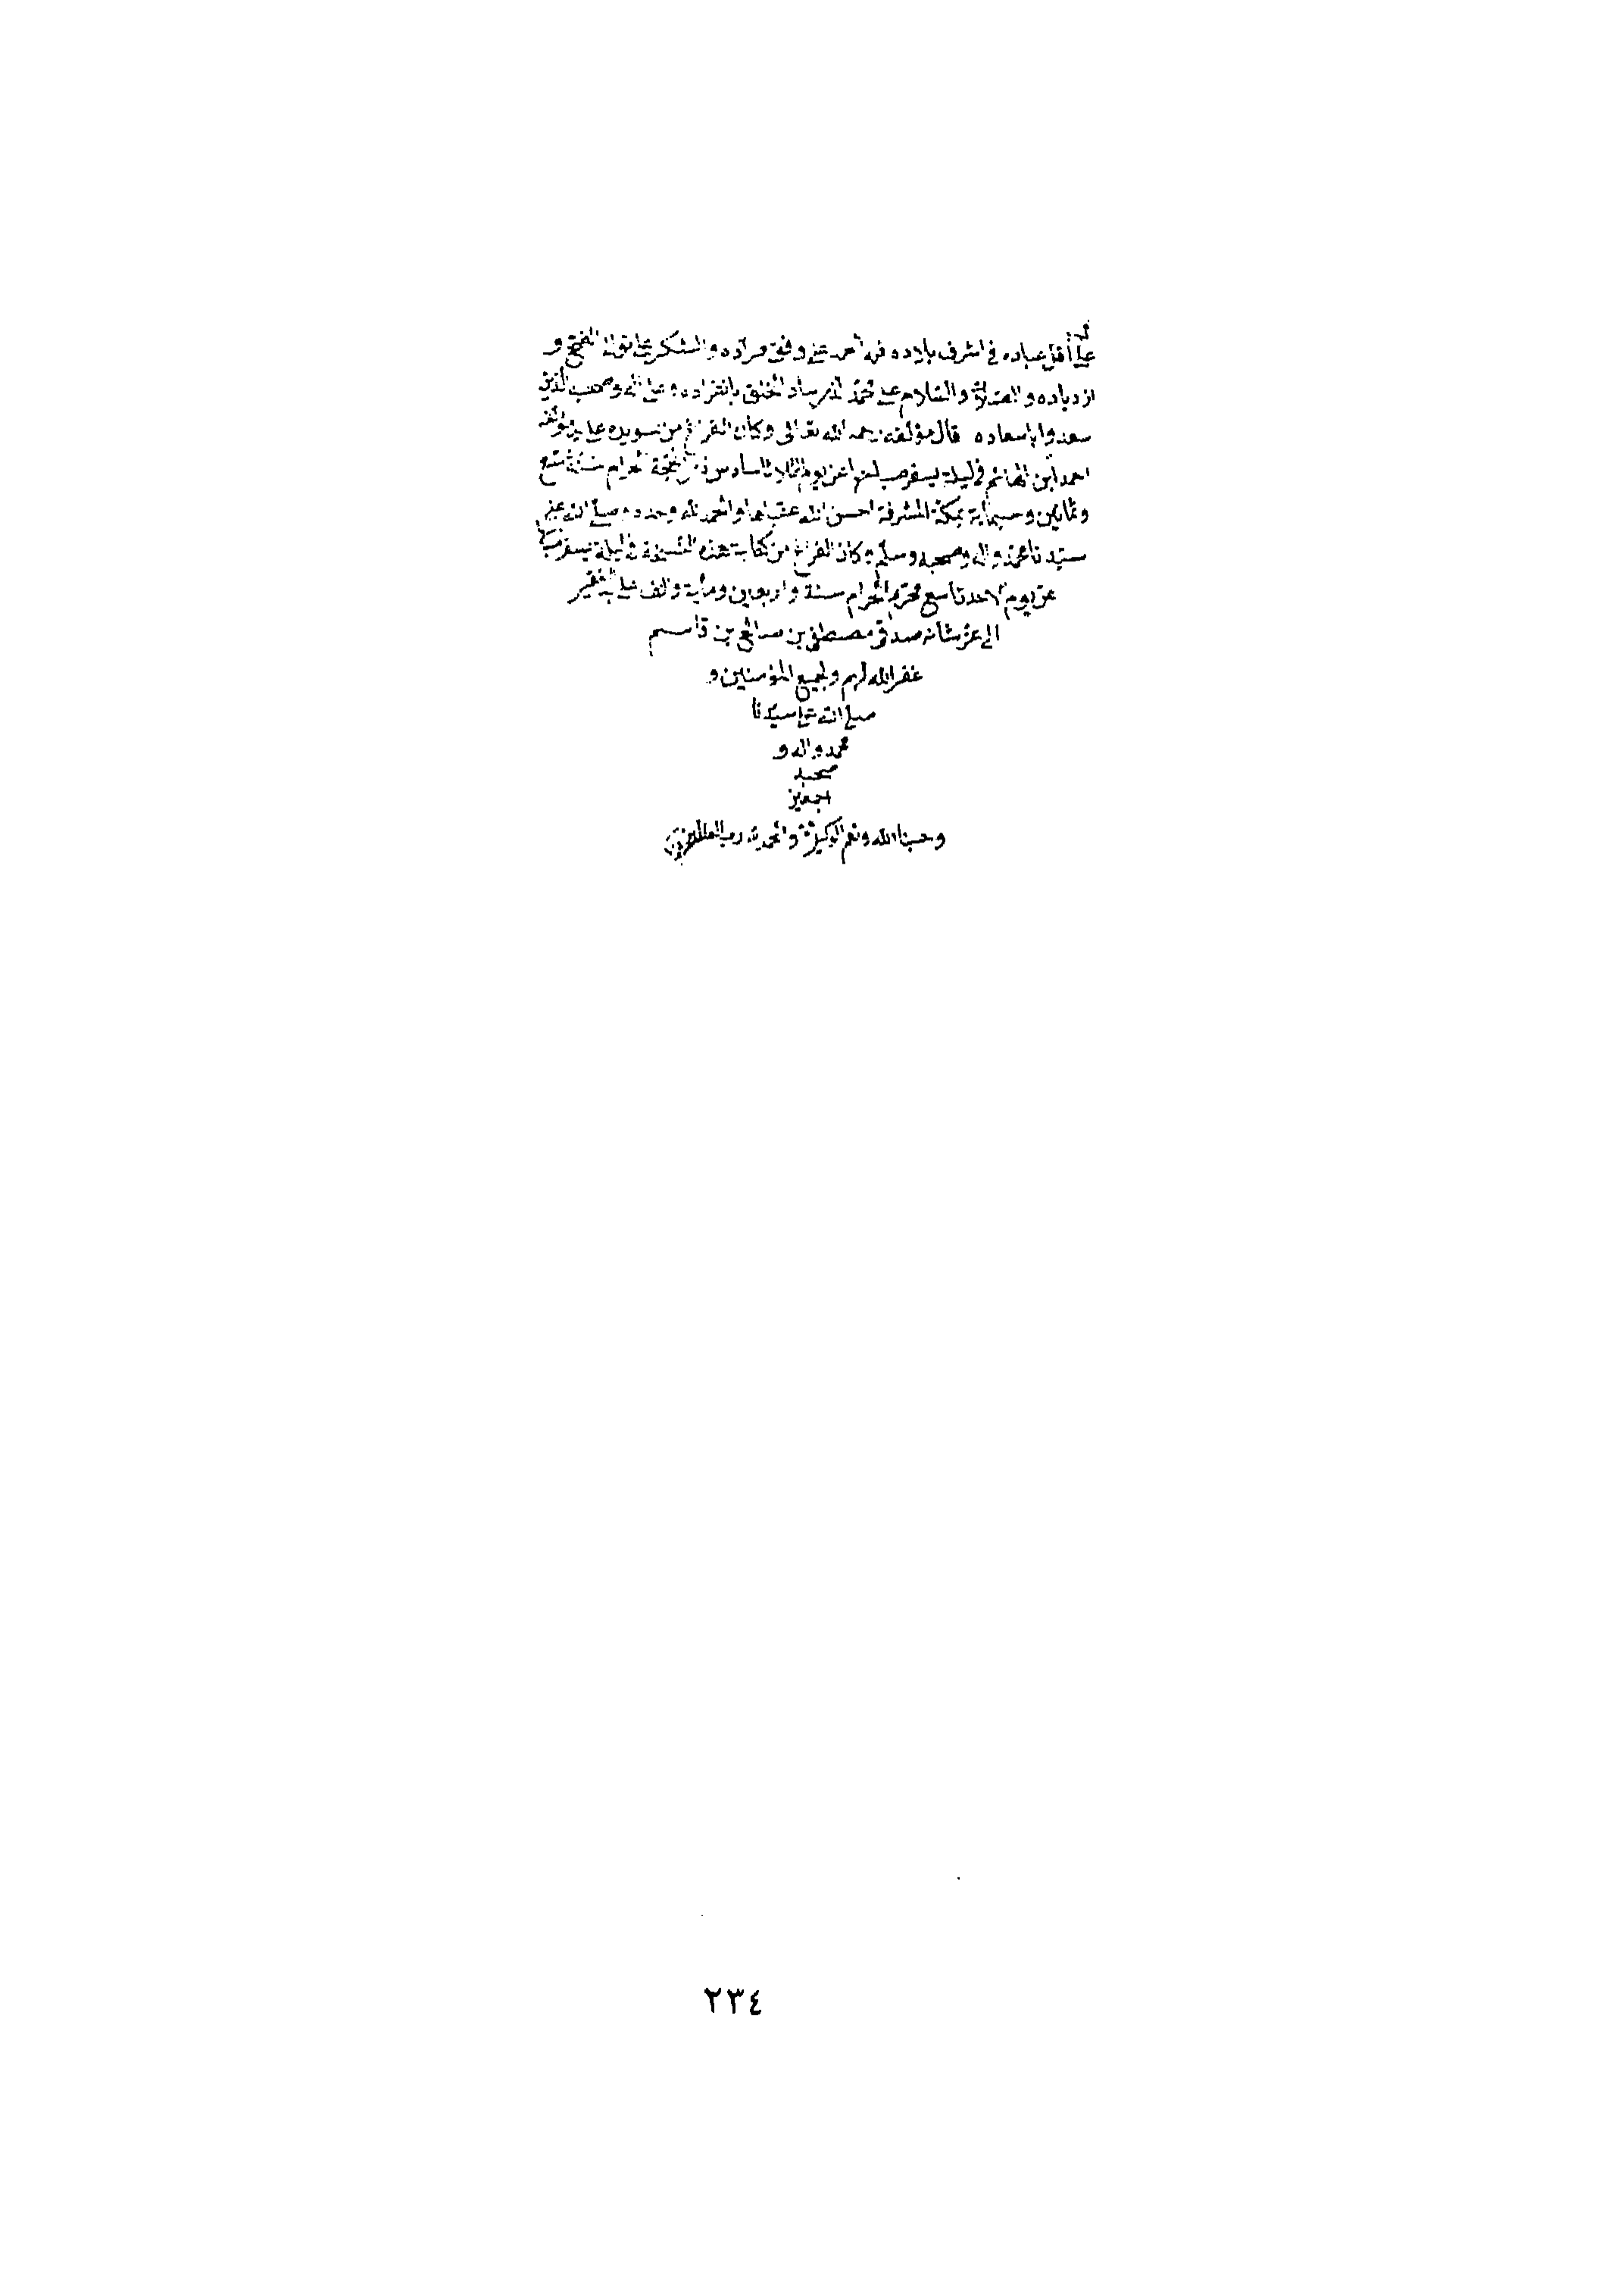 على أقل عباده في اشرف بلاده فله الحمد على وفق مراده والشكر على توالي الفتح و
ازدياده والصلاة والسلام على محمد الذي ساد الخلق بانفراده وعلى اله وصحبه الذين
سعدوا باسعاده قال مؤلفه رحمه الله تعالى وكان الفراغ من تسويده على يد مؤلفه
احمد ابن الهائم في ليلة يسفر صباحها عن يوم الثلاثا سادس ذي الحجة الحرام سنة تسع
وثمانين وسبماية بمكة المشرفة احسن الله عقباها والحمد لله وحده وصلى الله على
سيدنا محمد واله وصحبه وسلم وكان الفراغ من كتابة هذه النسخة في ليلة يسفر صباحها
عن يوم الاحد تاسع محرم الحرام سنة واربعين ومأية والف على يد الفقير
الى عز شانه صدقي مصطفى بن صالح بن قاسم
غفر الله لهم ولجميع المؤمنين و
صلى الله على سيدنا
محمد واله و
صحبه
اجمعين
وحسبنا الله ونعم الوكيل والحمد لله رب العالمين
٢٣٤